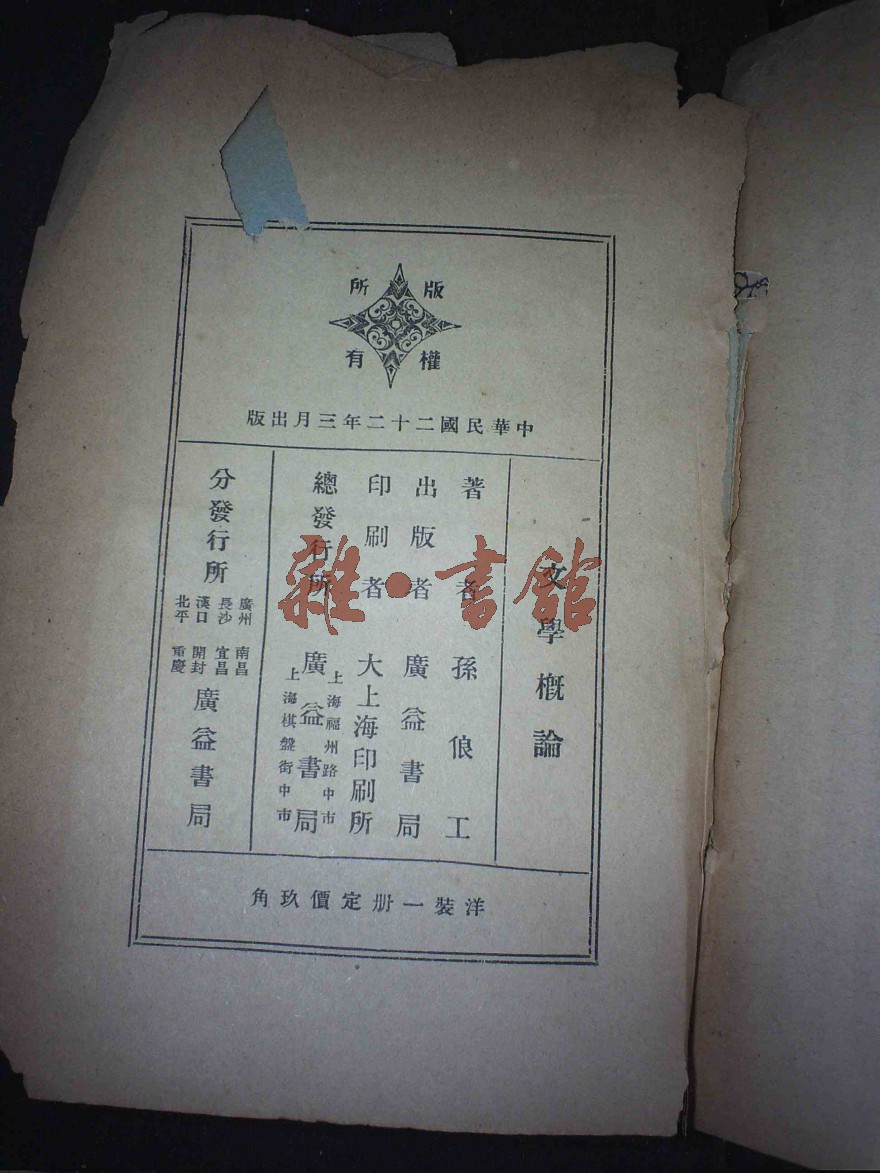 版權所有
中華民國二十二年三月出版
文學概論
著者 孫俍工
出版者 廣益書局
印刷者 大上海印刷所
總發行所 上海福州路中市 廣益書局 上海棋盤街中市
分發行所 廣州 南昌 長沙 宜昌 漢口 開封 北平 重慶 廣益書局
洋裝一册定價玖角
雜·書館